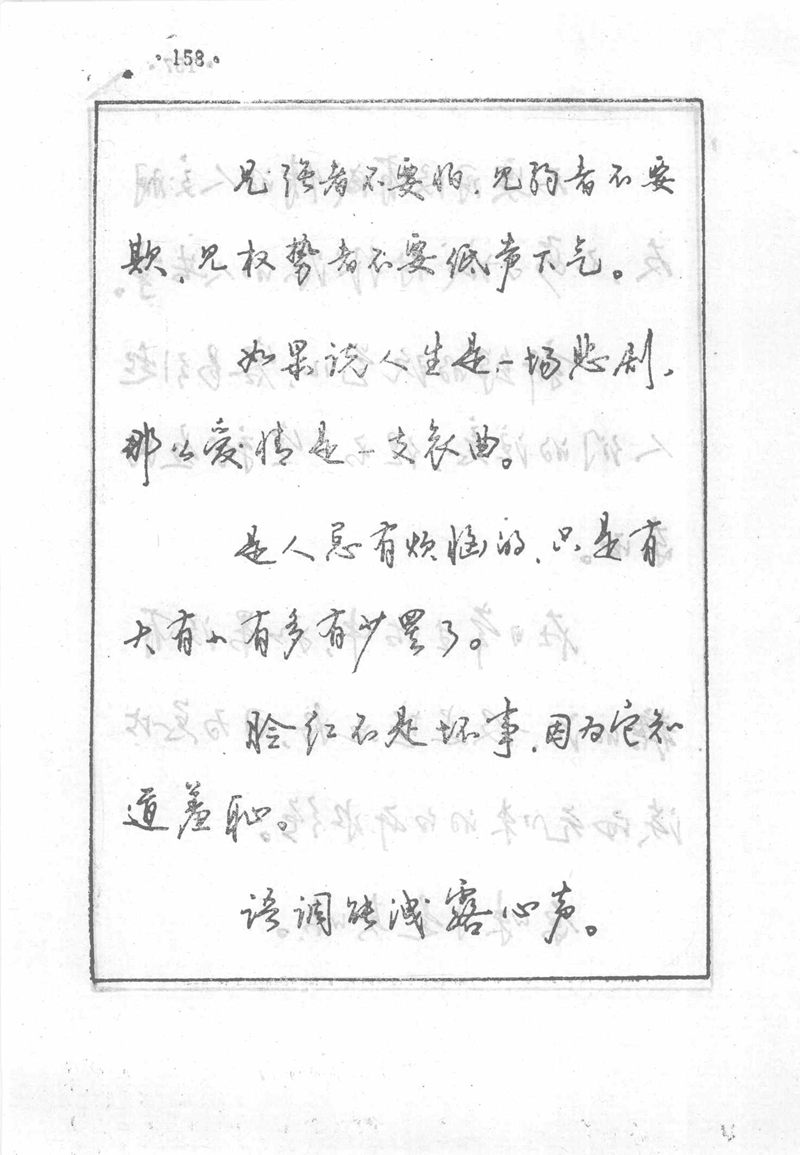 ·158·
见强者不要怕,见弱者不要
欺,见权势者不要低声下气。
如果说人生是一场悲剧,
那么爱情是一支哀曲。
是人总有烦恼的,只是有
大有小有多有少罢了。
脸红不是坏事,因为它知
道羞耻。
语调能泄露心声。